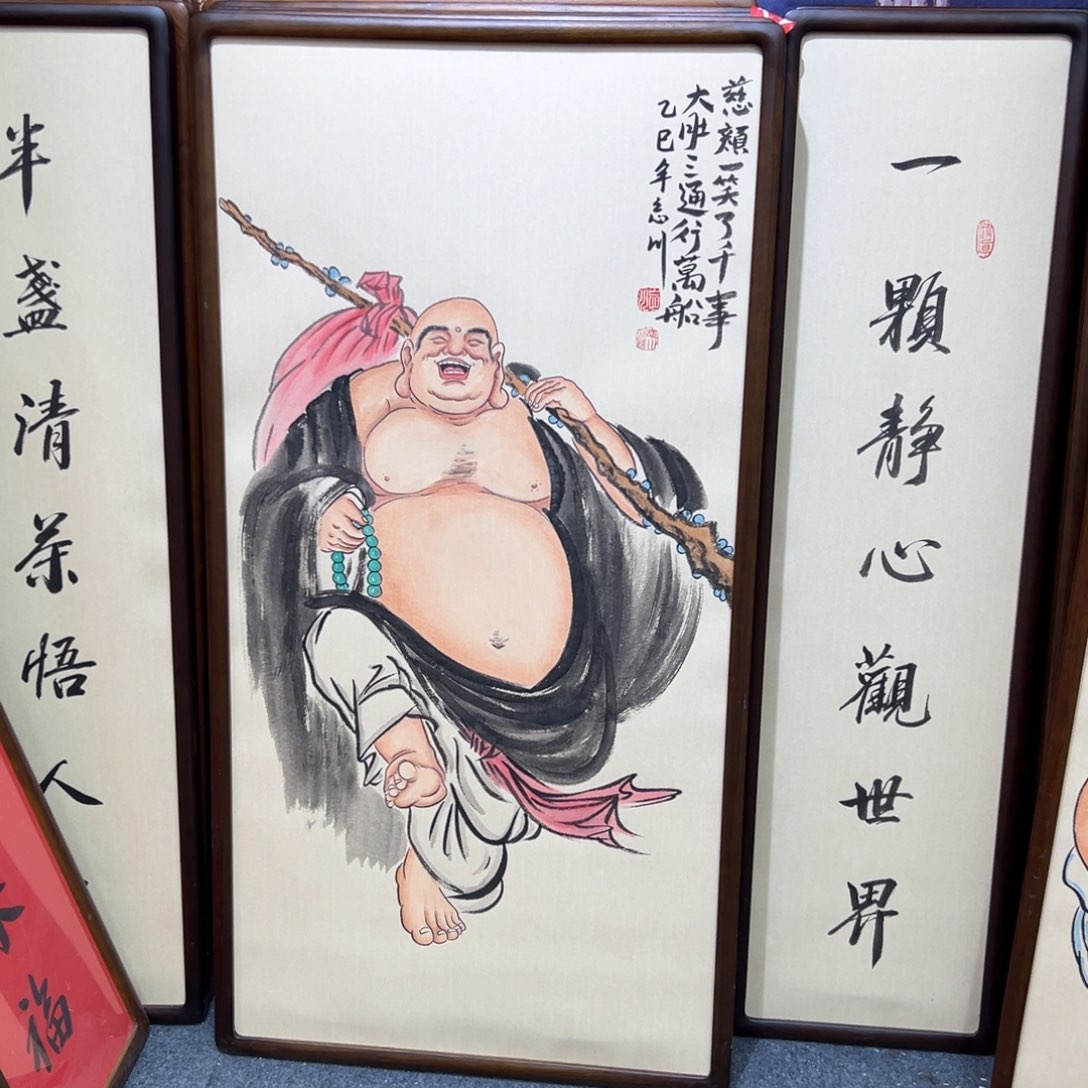 一顆静心觀世界
慈顔一笑了千事
大肚三通行萬船
乙巳年志川
半盞清茶悟人
福